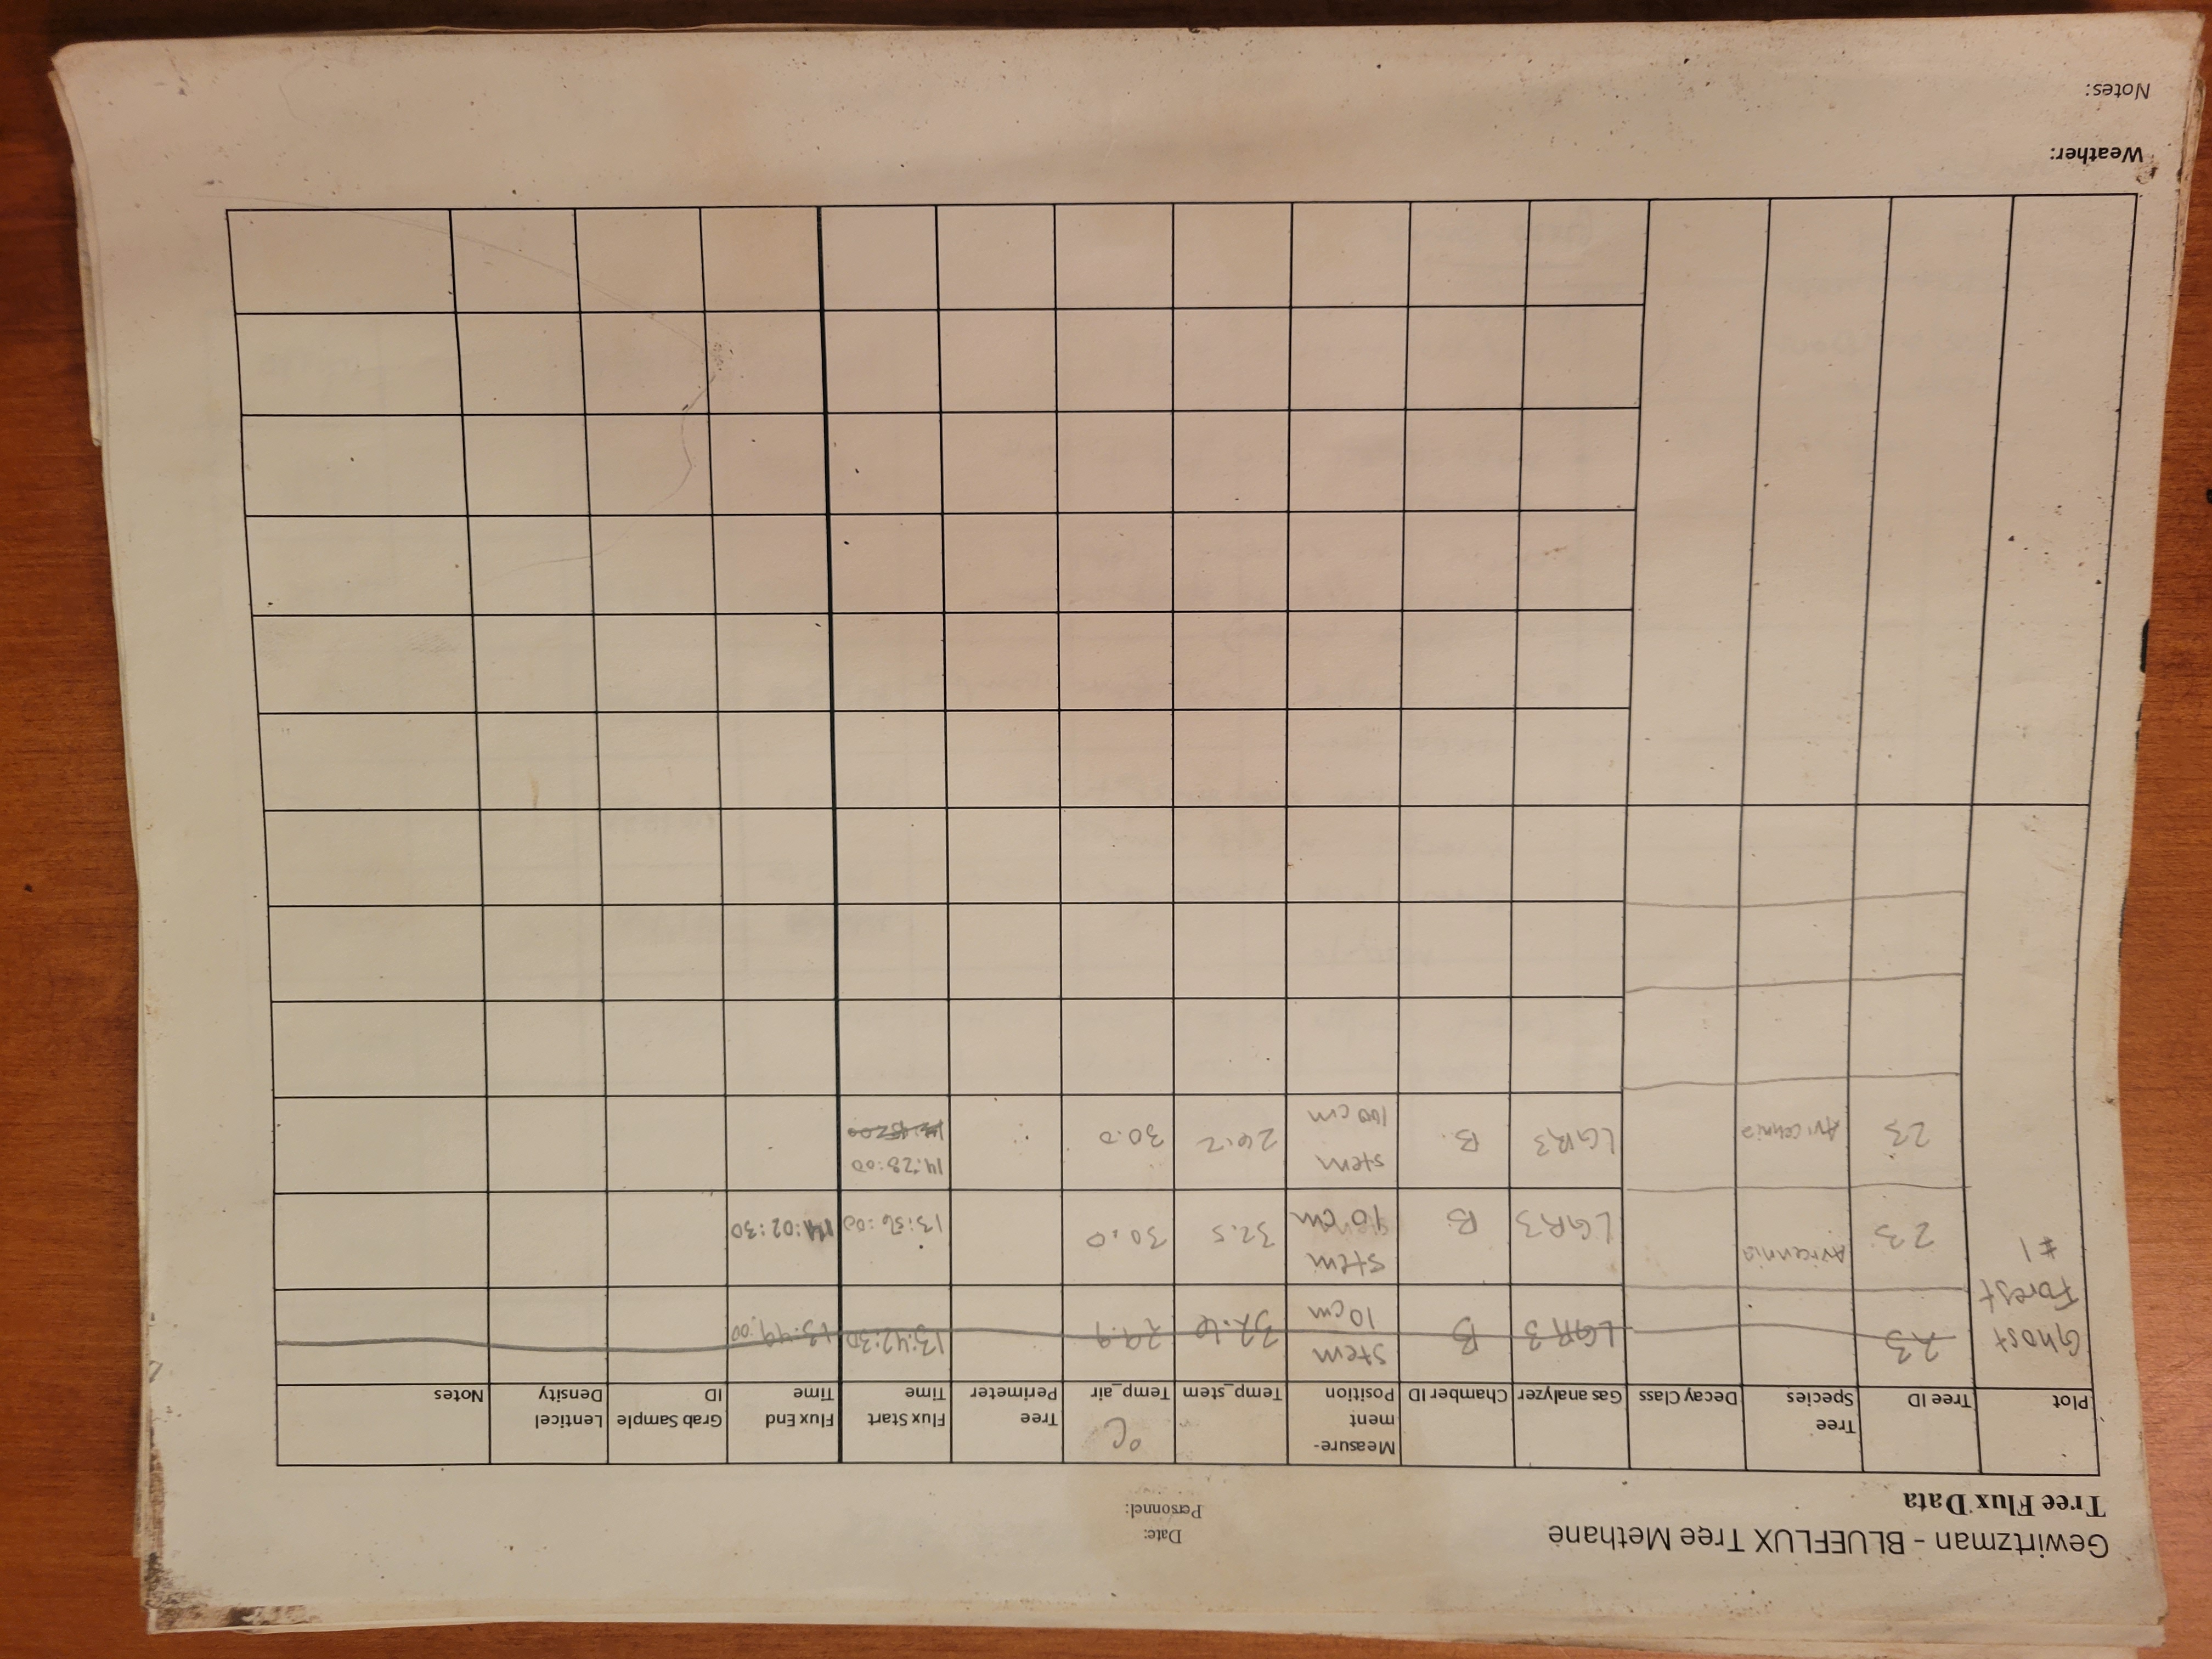 Gewirtzman - BLUEFLUX Tree Methane
Tree Flux Data
Date:
Personnel:
°C
Plot Tree ID Tree Species Decay Class Gas analyzer Chamber ID Measure-ment Position Temp_stem Temp_air Tree Perimeter Flux Start Time Flux End Time Grab Sample ID Lenticel Density Notes
Ghost Forest #1 23 LGR3 B Stem 10cm 32.6 29.9 13:42:30 13:49:00
23 Avicennia LGR3 B Stem cm 32.5 30.0 13:56:00 14:02:30
23 Avicennia LGR3 B stem 100 cm 26.2 30.0 14:28:00
Weather:
Notes: